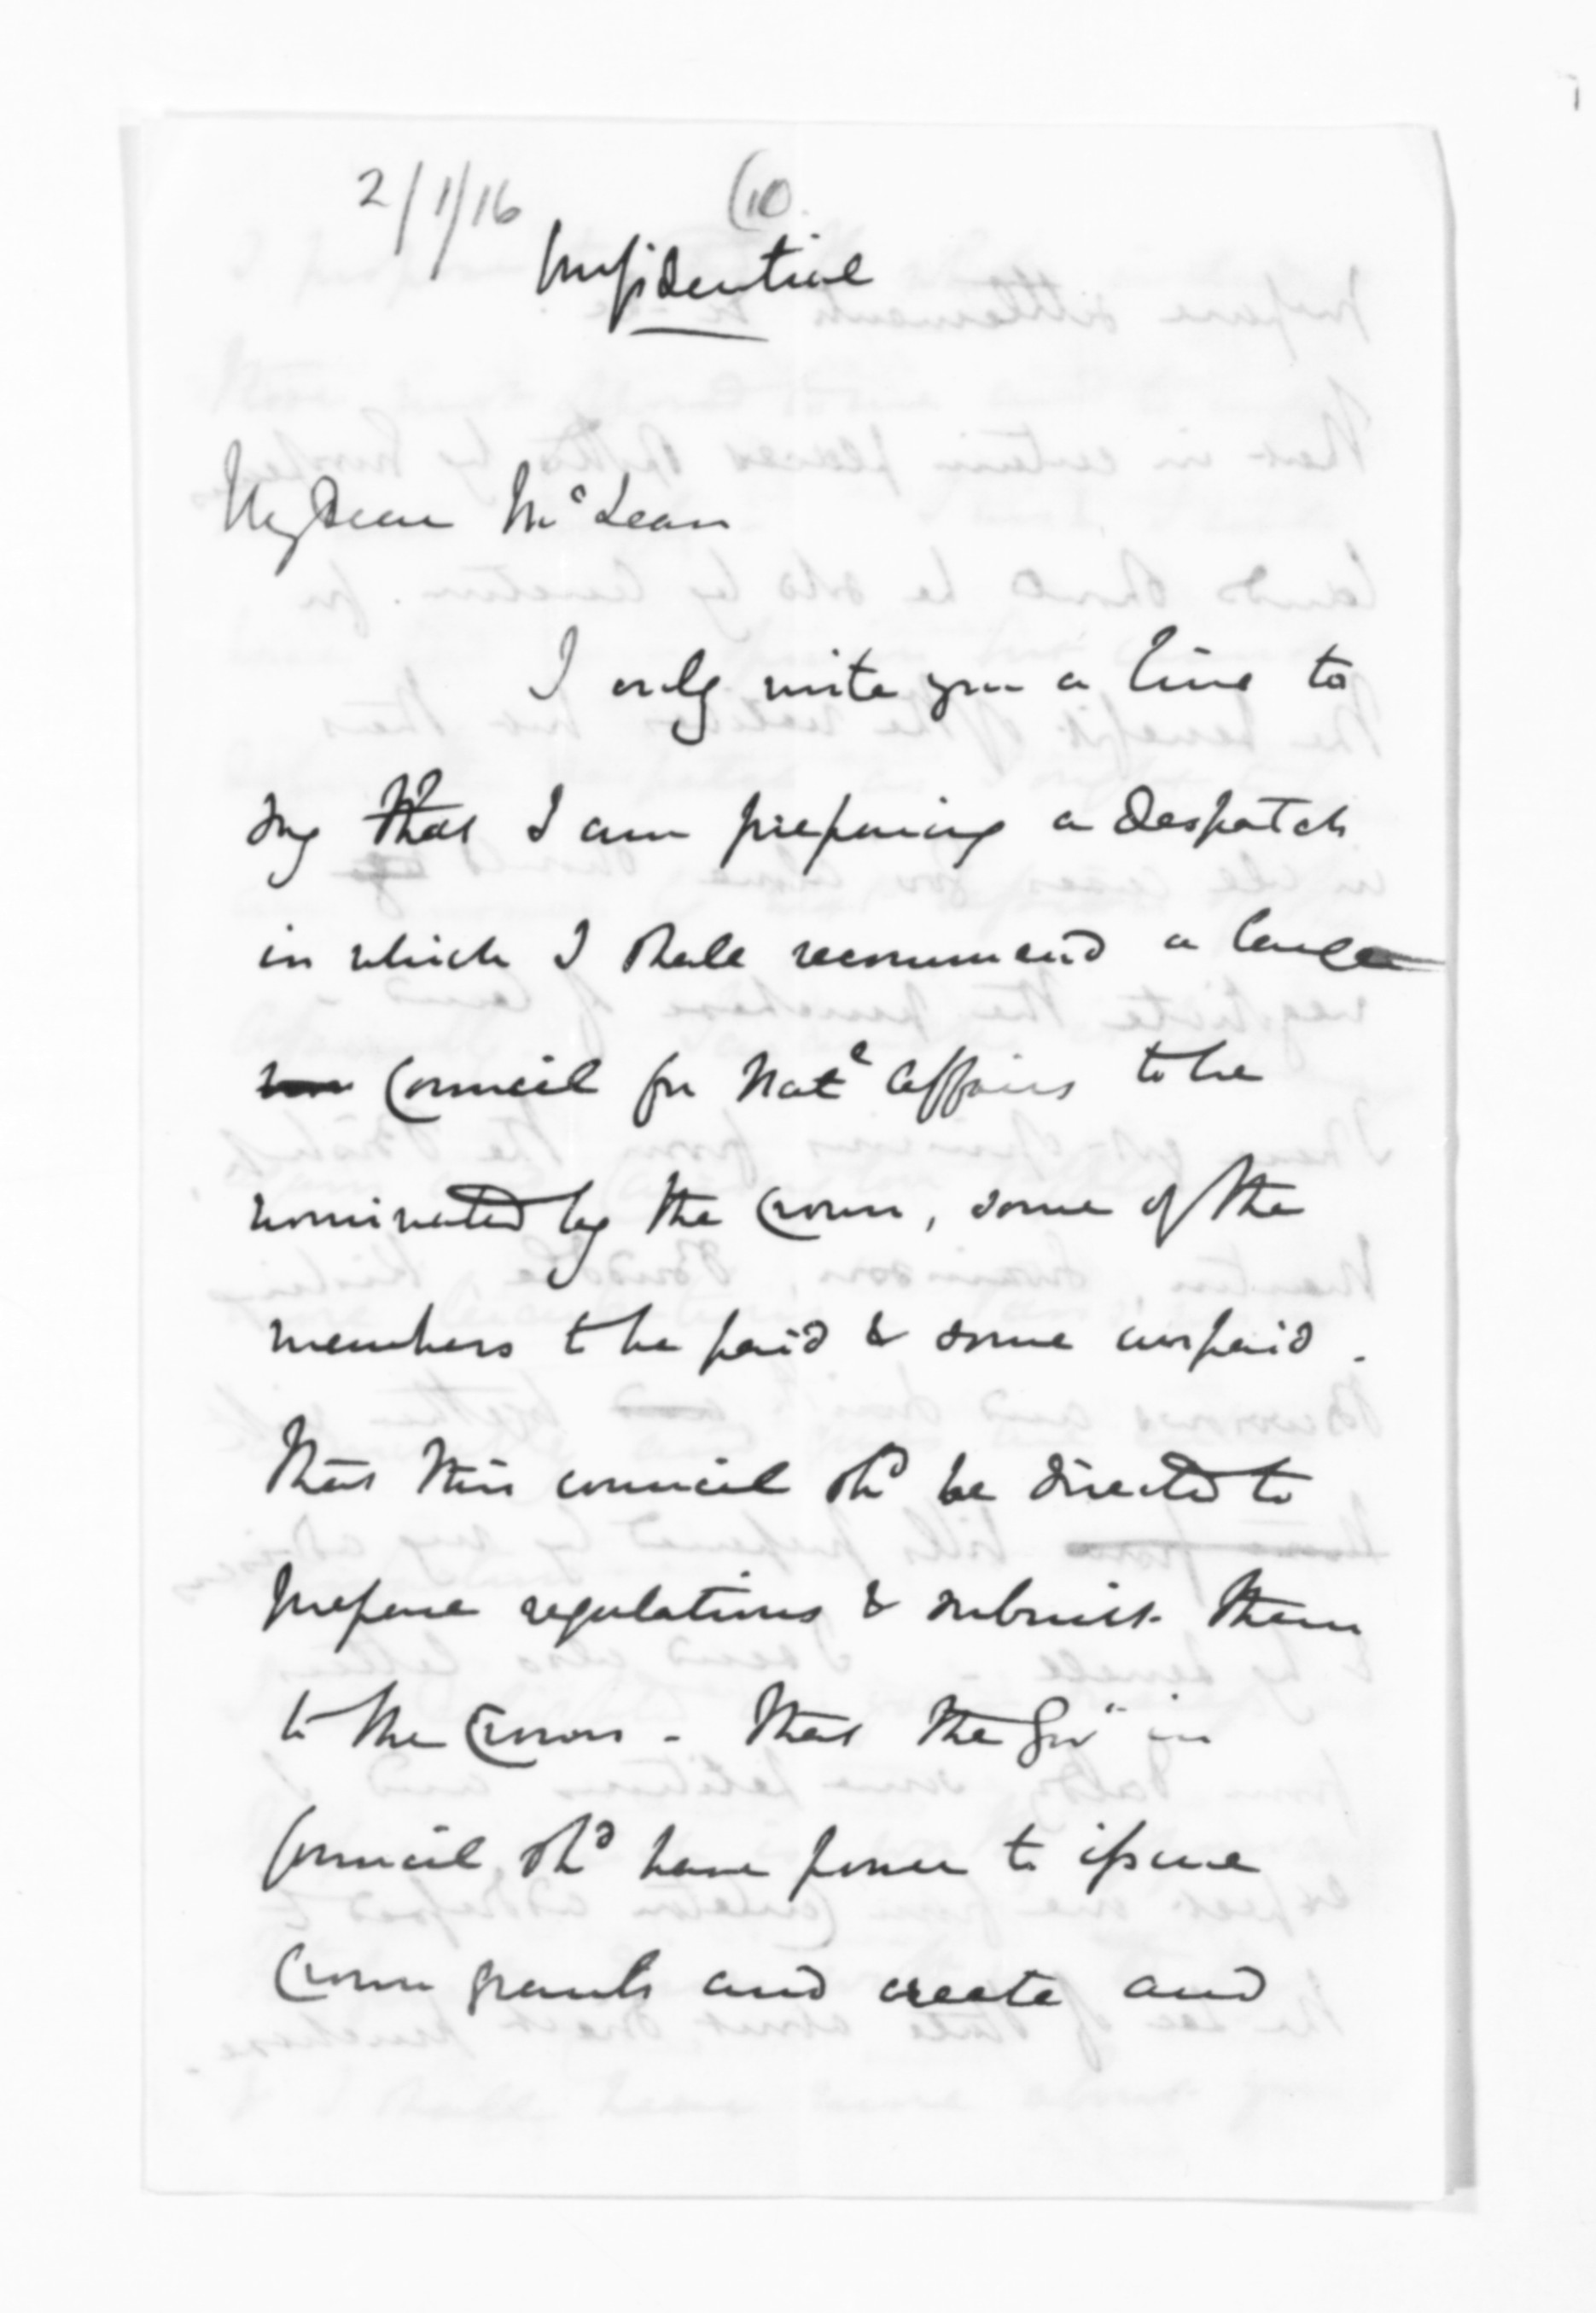 2/1/16 (10.
Confidential
My dear McLean
I only write you a line to
say that I am preparing a despatch
in which I shall recommend a large
Council for Nate affairs to be
nominated by the Crown, some of the
members to be paid & some unpaid.
That this council shd be directed to
prepare regulations & submit them
to the Crown - That the Govr in
Council shd have power to issue
Crown grants and create and